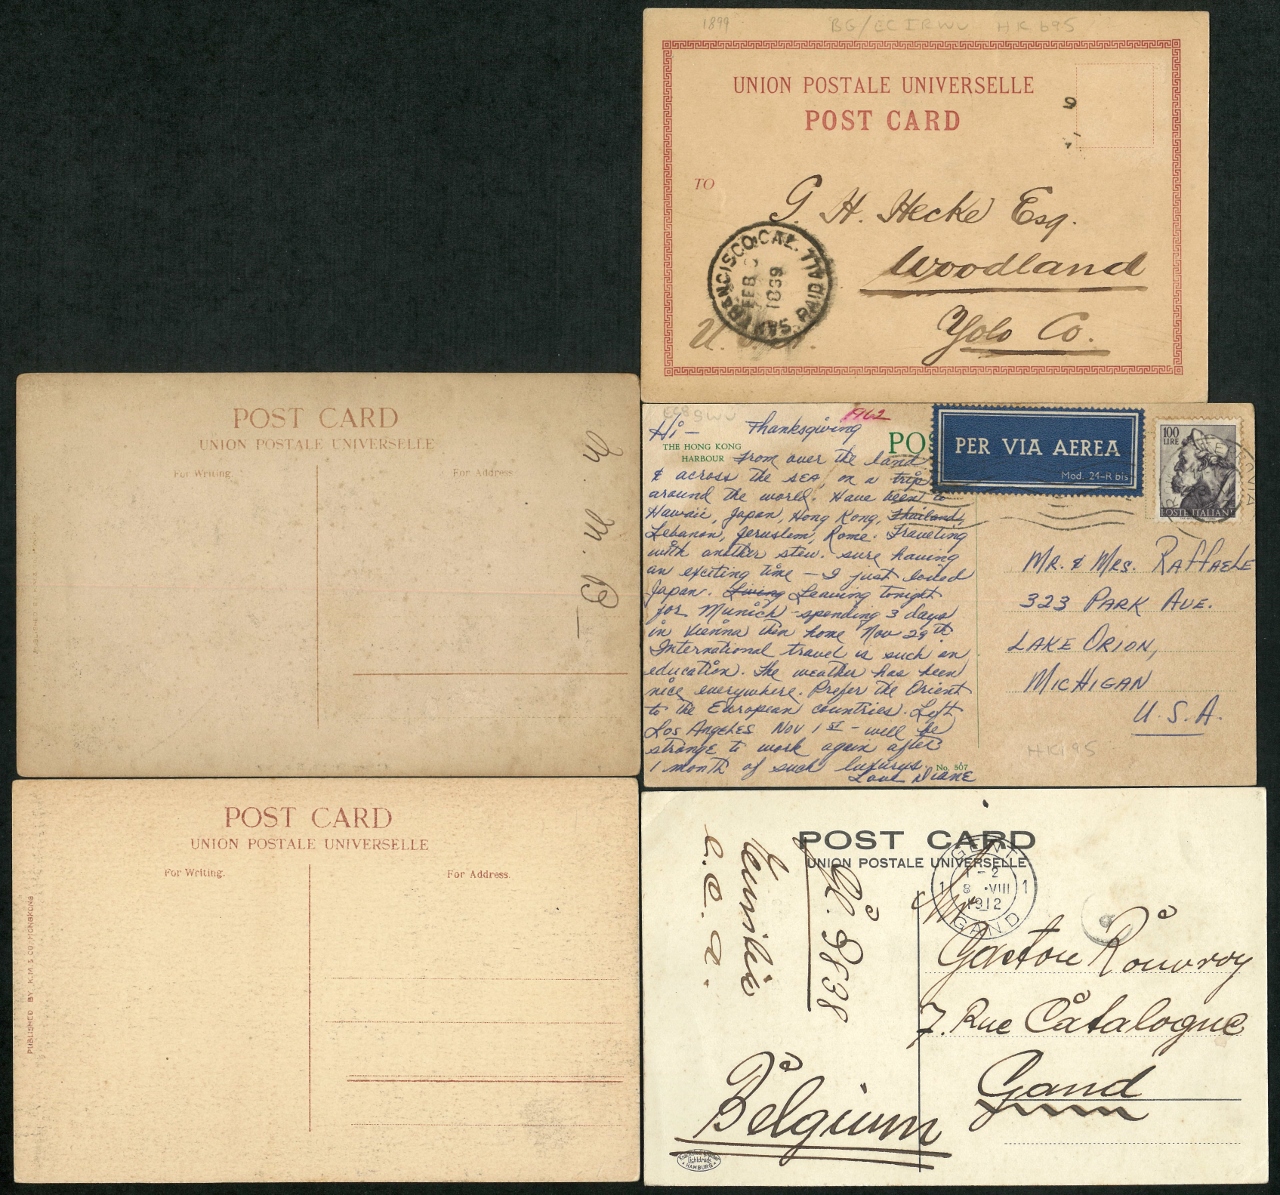 1899
HK 695
UNION POSTALE UNIVERSELLE
POST CARD
TO
G. H. Hecke Esq.
Woodland
Yolo Co.
SAN FRANCISCO, CAL. PAID ALL
FEB
1899
POST CARD
UNION POSTALE UNIVERSELLE
For Writing.
For Address.
h. m. B
1962
Hi - Thanksgiving
THE HONG KONG
HARBOUR
From over the land
& across the sea, on a trip
around the world. Have been to
Hawaii, Japan, Hong Kong, Thailand,
Lebanon, Jeruslem, Rome. Traveling
with another stew. sure having
an exciting time - I just loved
Japan. Living Leaving tonight
for Munich - spending 3 days
in Vienna then home Nov 29th.
International travel is such an
education. The weather has been
nice everywhere. Prefer the Orient
to the European countries. Left
Los Angeles Nov 1st - will be
strange to work again after
1 month of such luxurys.
Love Diane
No. 507
PO
PER VIA AEREA
Mod. 24-R bis
100
LIRE
POSTE ITALIANE
MR. & MRS. RAFFAELE
323 PARK AVE.
LAKE ORION,
MICHIGAN
U.S.A.
HK195
POST CARD
UNION POSTALE UNIVERSELLE
For Writing.
For Address.
PUBLISHED BY K. M. & CO. HONGKONG
POST CARD
UNION POSTALE UNIVERSELLE
GENT
1-2
1 8 VIII 1
1912
GAND
Gaston Rouvroy
7. Rue Catalogne
Gand
Belgium
9838
HAMBURG